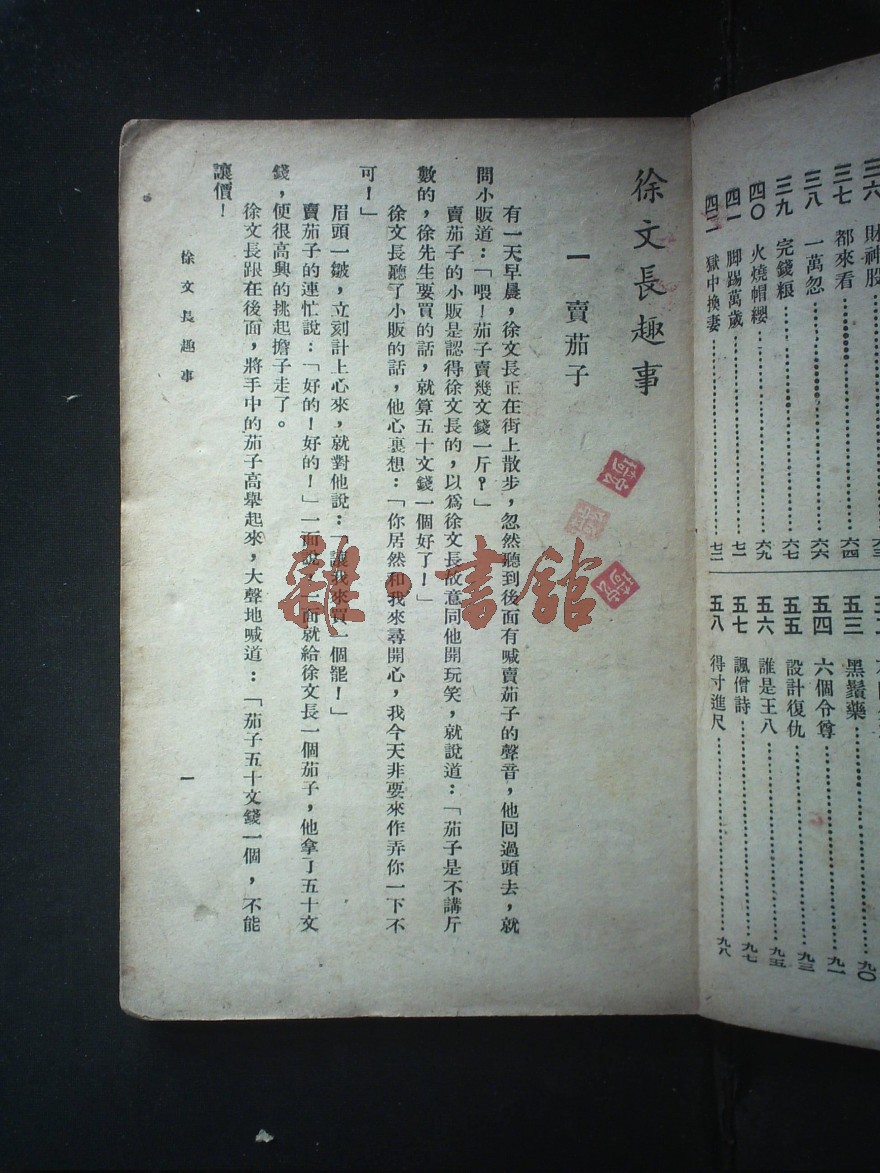 三六 財神股
三七 都來看 六四
三八 一萬忽 六六
三九 完錢粮 六七
四〇 火燒帽纓 六九
四一 脚踢萬歲 七一
四二 獄中換妻 七二
九〇
五三 黑鬚藥
五四 六個令尊 九一
五五 設計復仇 九三
五六 誰是王八 九五
五七 諷僧詩 九七
五八 得寸進尺 九八
徐文長趣事
一 賣茄子
有一天早晨，徐文長正在街上散步，忽然聽到後面有喊賣茄子的聲音，他回過頭去，就
問小販道：「喂！茄子賣幾文錢一斤？」
賣茄子的小販是認得徐文長的，以爲徐文長故意同他開玩笑，就說道：「茄子是不講斤
數的，徐先生要買的話，就算五十文錢一個好了！」
徐文長聽了小販的話，他心裏想：「你居然和我來尋開心，我今天非要來作弄你一下不
可！」
眉頭一皺，立刻計上心來，就對他說：「讓我來買一個罷！」
賣茄子的連忙說：「好的！好的！」一面說，一面就給徐文長一個茄子，他拿了五十文
錢，便很高興的挑起擔子走了。
徐文長跟在後面，將手中的茄子高舉起來，大聲地喊道：「茄子五十文錢一個，不能
讓價！
徐文長趣事
一
雜·書館